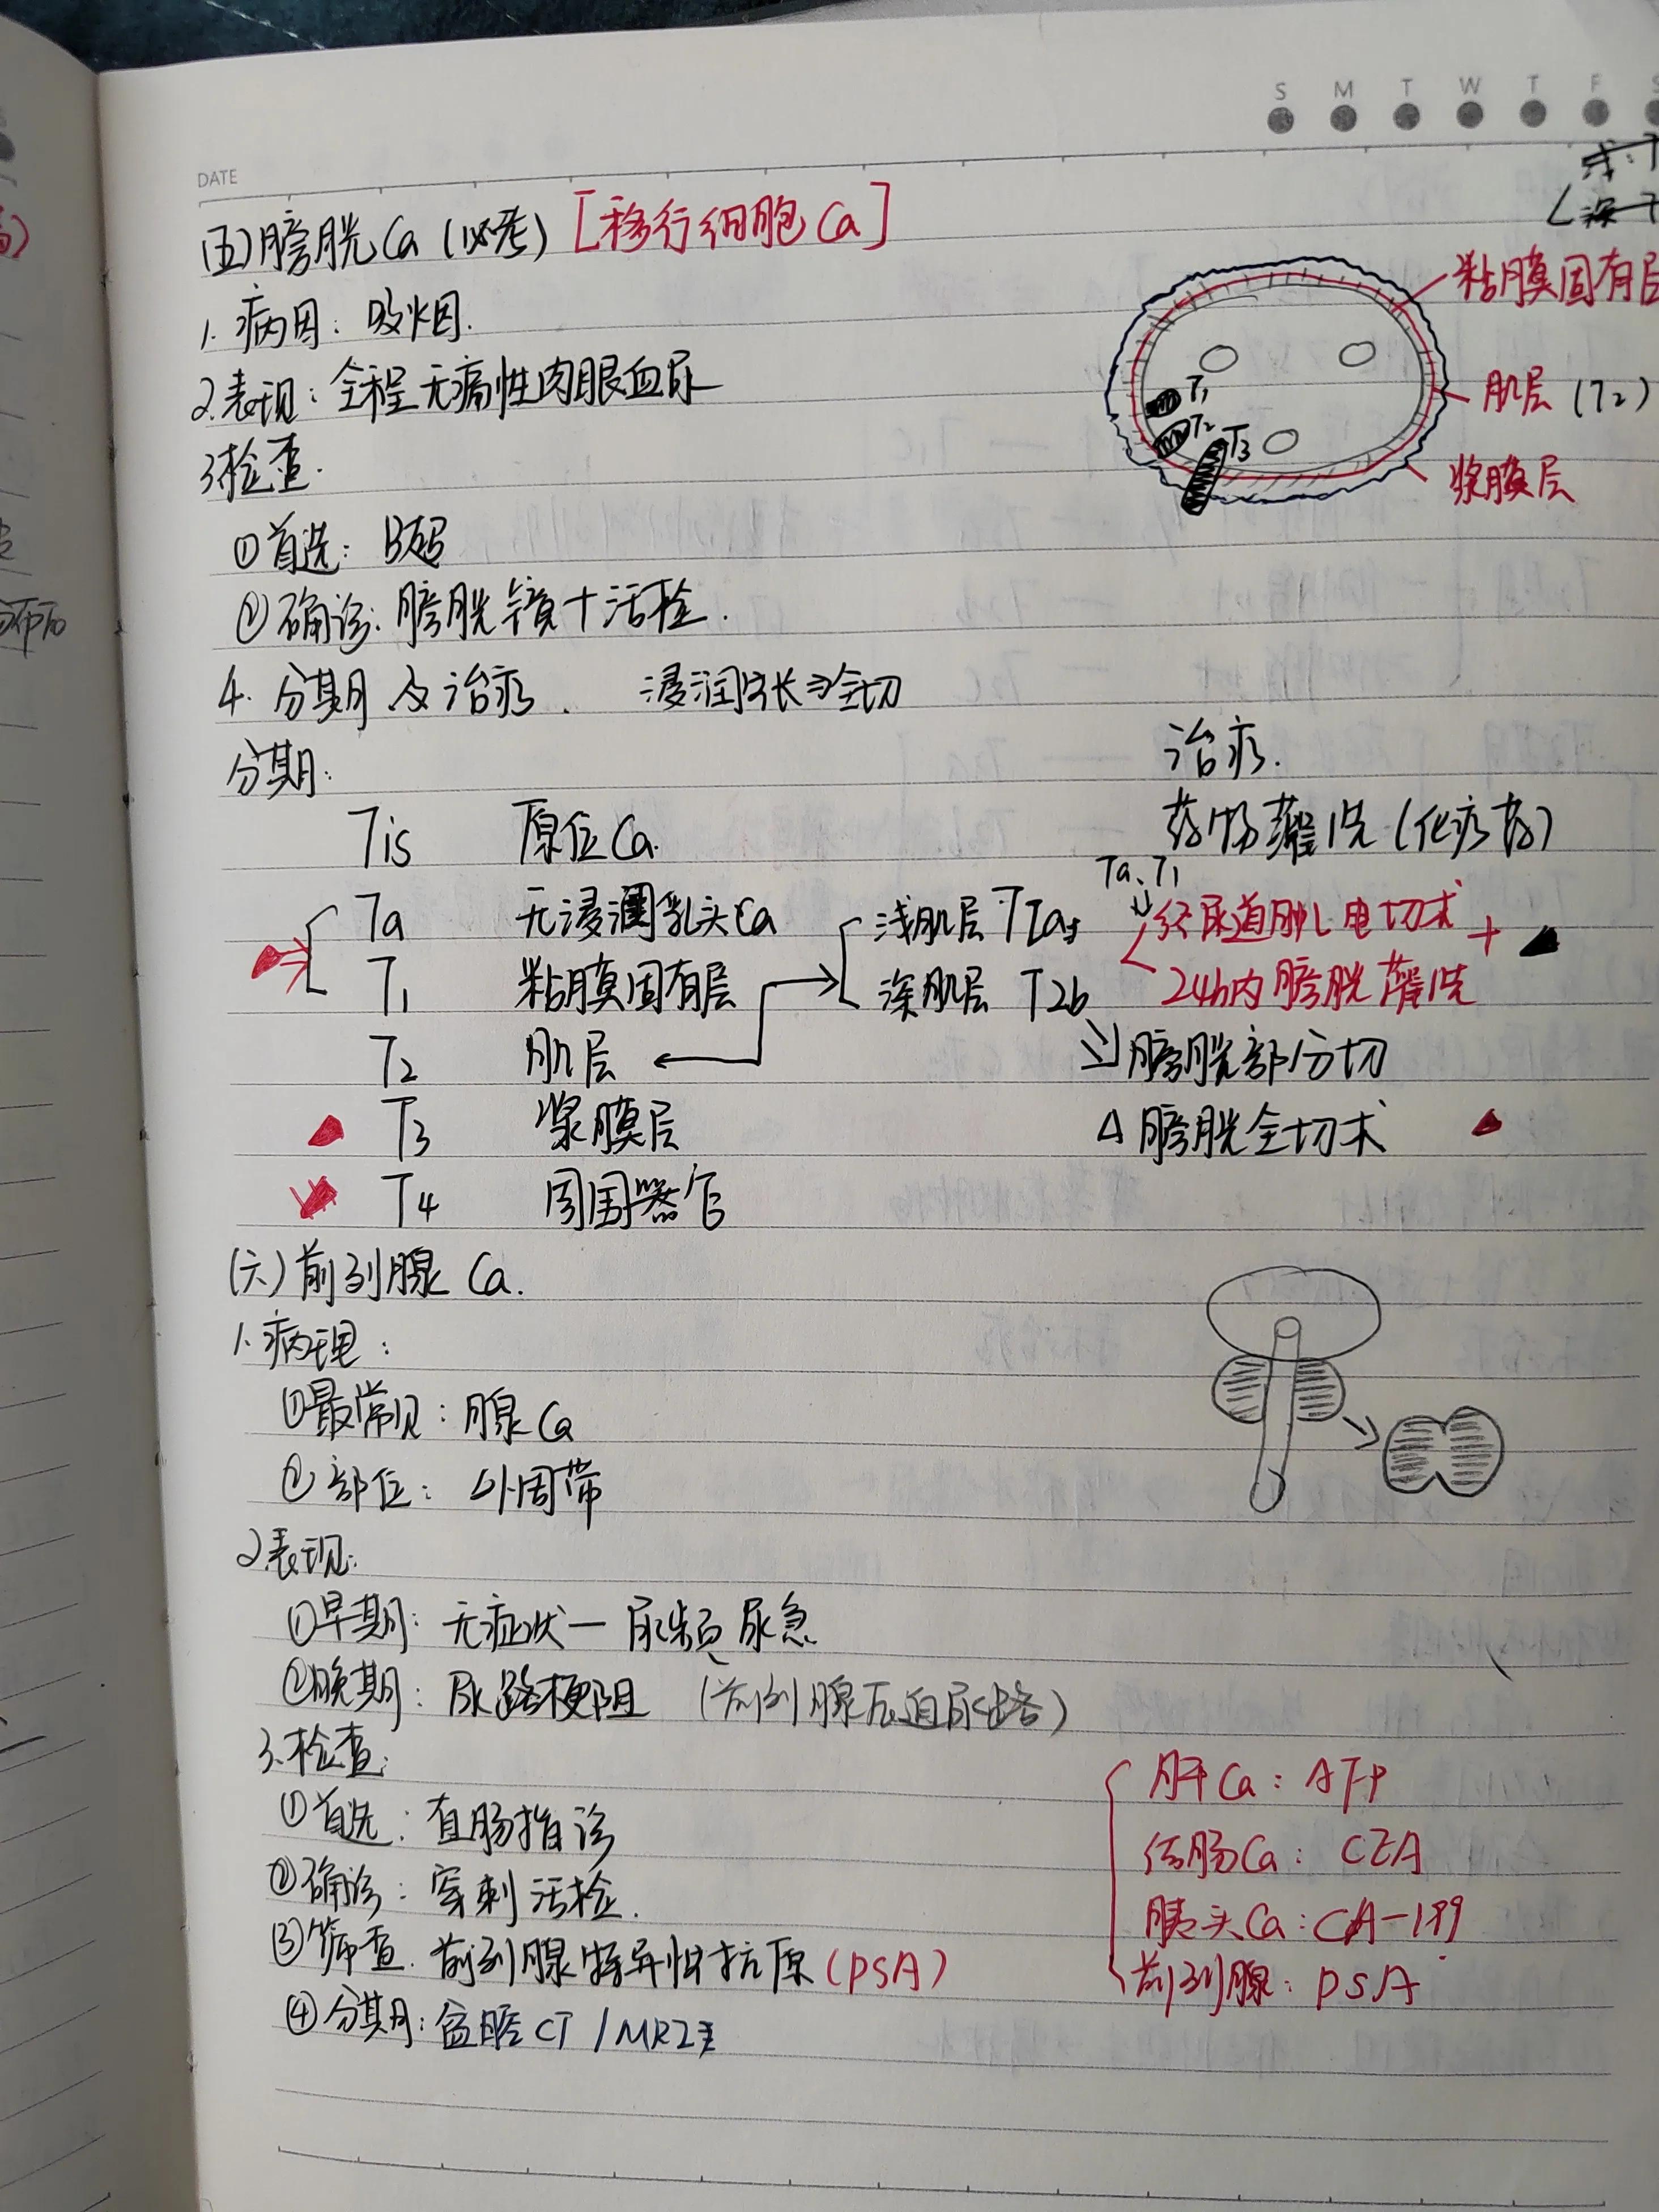 S M T W T F S
DATE
(五)膀胱Ca (必考) [移行细胞Ca]
粘膜固有层
肌层 (T2)
浆膜层
T1
T2
T3
1. 病因: 吸烟.
2.表现: 全程无痛性肉眼血尿
3检查.
①首选: B超
②确诊: 膀胱镜+活检.
4. 分期及治疗.
分期:
治疗.
Tis 原位Ca. 药物灌洗(化疗药)
Ta 无浸润乳头Ca 浅肌层
Ta、T1
经尿道肿瘤电切术 +
T1 粘膜固有层 深肌层 T2b 24h内膀胱灌洗
T2 肌层 膀胱部分切
T3 浆膜层 △膀胱全切术
T4 周围器官
(六)前列腺Ca.
1.病理:
①最常见: 腺Ca
②部位: 外周带
2.表现:
①早期: 无症状—尿频尿急
②晚期: 尿路梗阻 (前列腺压迫尿路)
3.检查:
①首选: 直肠指诊
②确诊: 穿刺活检.
③筛查. 前列腺特异性抗原(PSA)
④分期: 盆腔CT/MRI
肝Ca: AFP
结肠Ca: CEA
胰头Ca: CA-199
前列腺: PSA